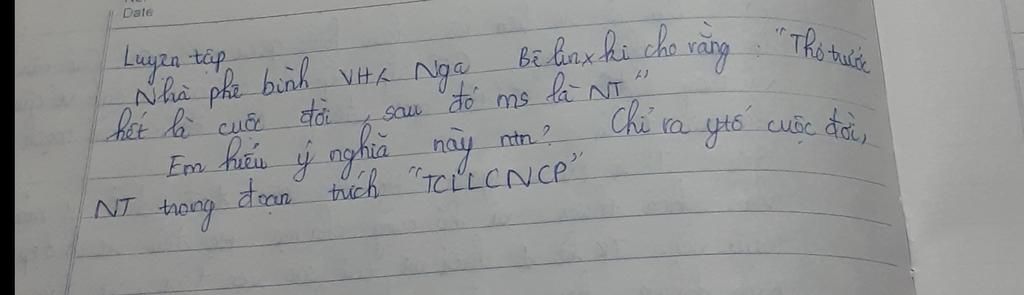 Date
Luyện tập
Nhà phê bình VHX Nga Bê linxki cho rằng : "Thơ trước
hết là cuộc đời, sau đó ms là NT"
Em hiểu ý nghĩa này ntn? Chỉ ra ytố cuộc đời,
NT trong đoạn trích "TCLLCNCP"